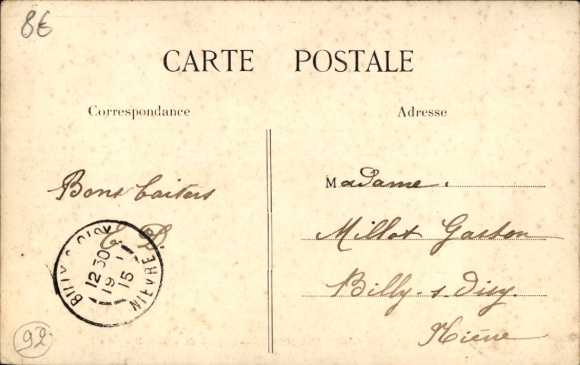 8€
CARTE POSTALE
Correspondance
Adresse
Bons baisers
Madame.
Millot Gaston
Billy-s-Oisy.
Nièvre
12 30
19
15
92